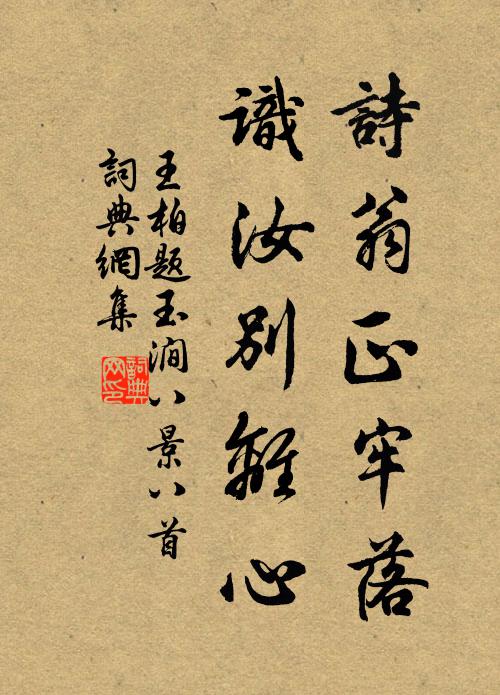 詩翁正牢落
識汝別離心
王柏題玉澗八景八首
詞典網集
詞典
网印